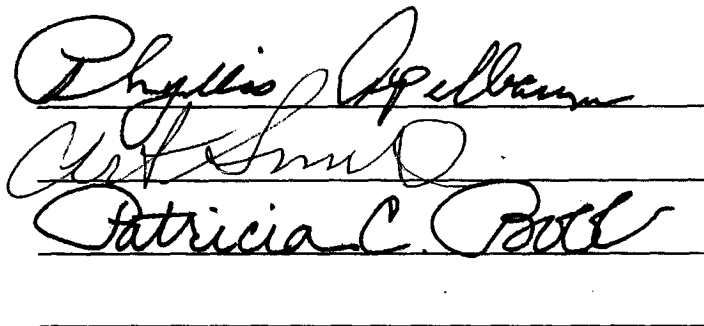 Phyllis Apelbaum
Art Smith
Patricia C. Boll